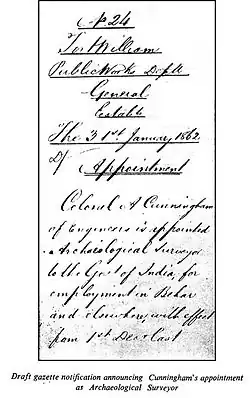 No 24
Fort William
Public Works Deptt
General
Estabt
The 31st January 1862
Appointment
Colonel A Cunningham
of Engineers is appointed
Archaeological Surveyor
to the Govt of India, for
employment in Behar
and elsewhere, with effect
from 1st Decr last
Draft gazette notification announcing Cunningham's appointment
as Archaeological Surveyor